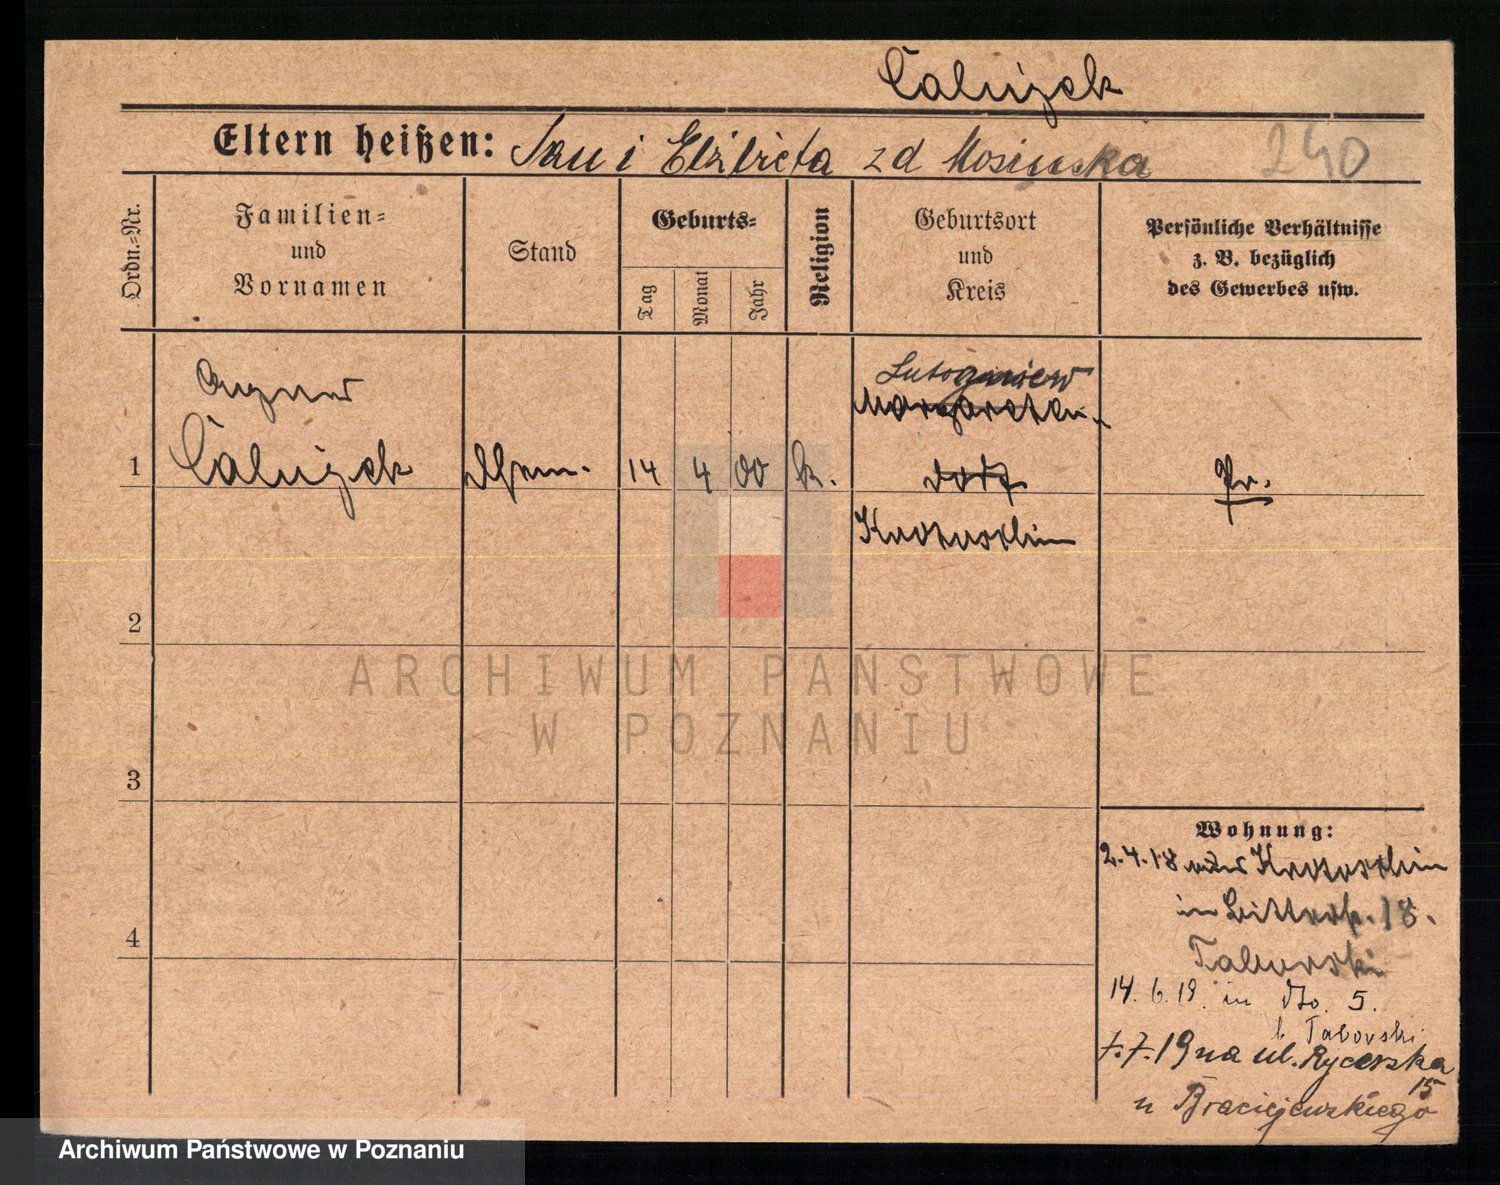 Całujek
Eltern heißen: Jan i Elżbieta zd Mosinska 240
Ordn.-Nr.
Familien-
und
Vornamen
Stand
Geburts-
Tag
Monat
Jahr
Religion
Geburtsort
und
Kreis
Persönliche Verhältnisse
z. B. bezüglich
des Gewerbes usw.
Agnes
Lutogniew
Margareten-
1
14 4 00 k.
dorf
Pr.
Krotoschin
2
3
4
Wohnung:
2.4.18 Krotoschin
in 18.
Taborski
14. 6. 19. in dto. 5.
b. Taborski
7.7.19 na ul. Rycerska
15
u Braciejewskiego
ARCHIWUM PAŃSTWOWE
W POZNANIU
Archiwum Państwowe w Poznaniu